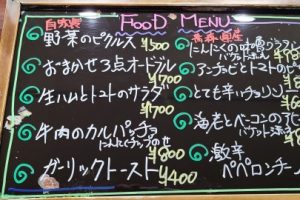 FOOD MENU
自家製
野菜のピクルス ¥500
おまかせ3点オードブル
¥700
生ハムとトマトのサラダ
¥700
牛肉のカルパッチョ
にんにくチップのせ
¥800
ガーリックトースト ¥400
青森県産
にんにくの味噌
バケット添え
アンチョビとトマトのピ
とても辛いチョリソ
海老とベーコンのアヒ
バケット添え
激辛
ペペロンチー